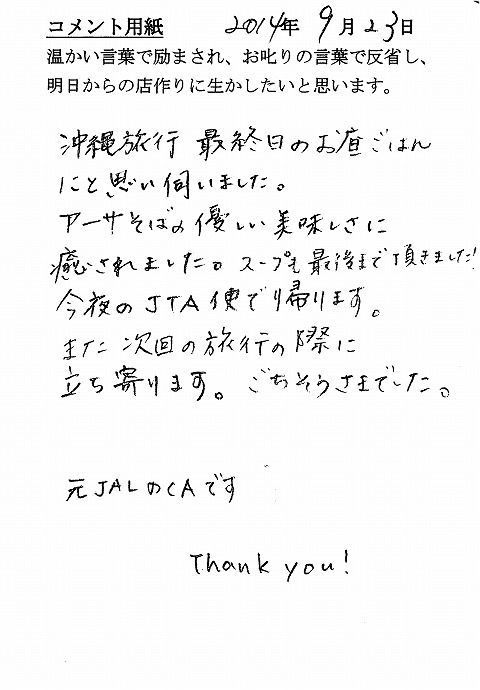 コメント用紙 2014年 9月23日
温かい言葉で励まされ、お叱りの言葉で反省し、
明日からの店作りに生かしたいと思います。
沖縄旅行 最終日のお昼ごはん
にと思い伺いました。
アーサそばの優しい美味しさに
癒されました。スープも最後まで頂きました!
今夜のJTA便で帰ります。
また次回の旅行の際に
立ち寄ります。ごちそうさまでした。
元JALのCAです
Thank you!